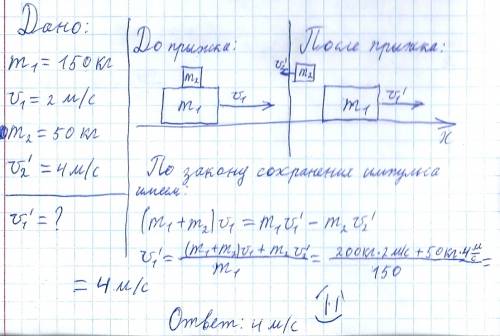 Дано:
m₁ = 150 кг
v₁ = 2 м/с
m₂ = 50 кг
v₂' = 4 м/с
v₁' = ?
До прыжка:
m₂
m₁
v₁
После прыжка:
v₂'
m₂
m₁
v₁'
x
По закону сохранение импульса
имеем:
(m₁ + m₂) v₁ = m₁ v₁' − m₂ v₂'
v₁' = ((m₁ + m₂) v₁ + m₂ v₂') / m₁ = (200 кг · 2 м/с + 50 кг · 4 м/с) / 150 =
= 4 м/с
Ответ: 4 м/с